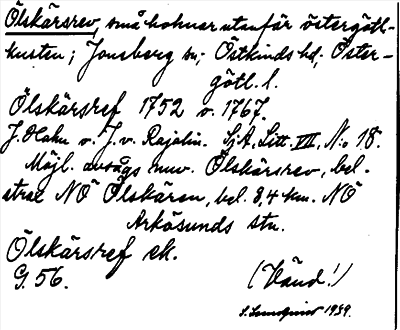 Ölskärsrev, små holmar utanför östergötl-
kusten; Jonsberg sn; Östkinds hd; Öster-
götl. l.
Ölskärsref 1752 o. 1767.
J. Hahn o. J. v. Rajalin. Sj.A. Litt. VII, No 18.
Möjl. avsågs nuv. Ölskärsrev, bel.
strax NÖ Ölskären, bel. 8,4 km. NÖ
Arkösunds stn.
Ölskärsref ek.
G. 56.
(Vänd!)
S. Lundqvist 1939.